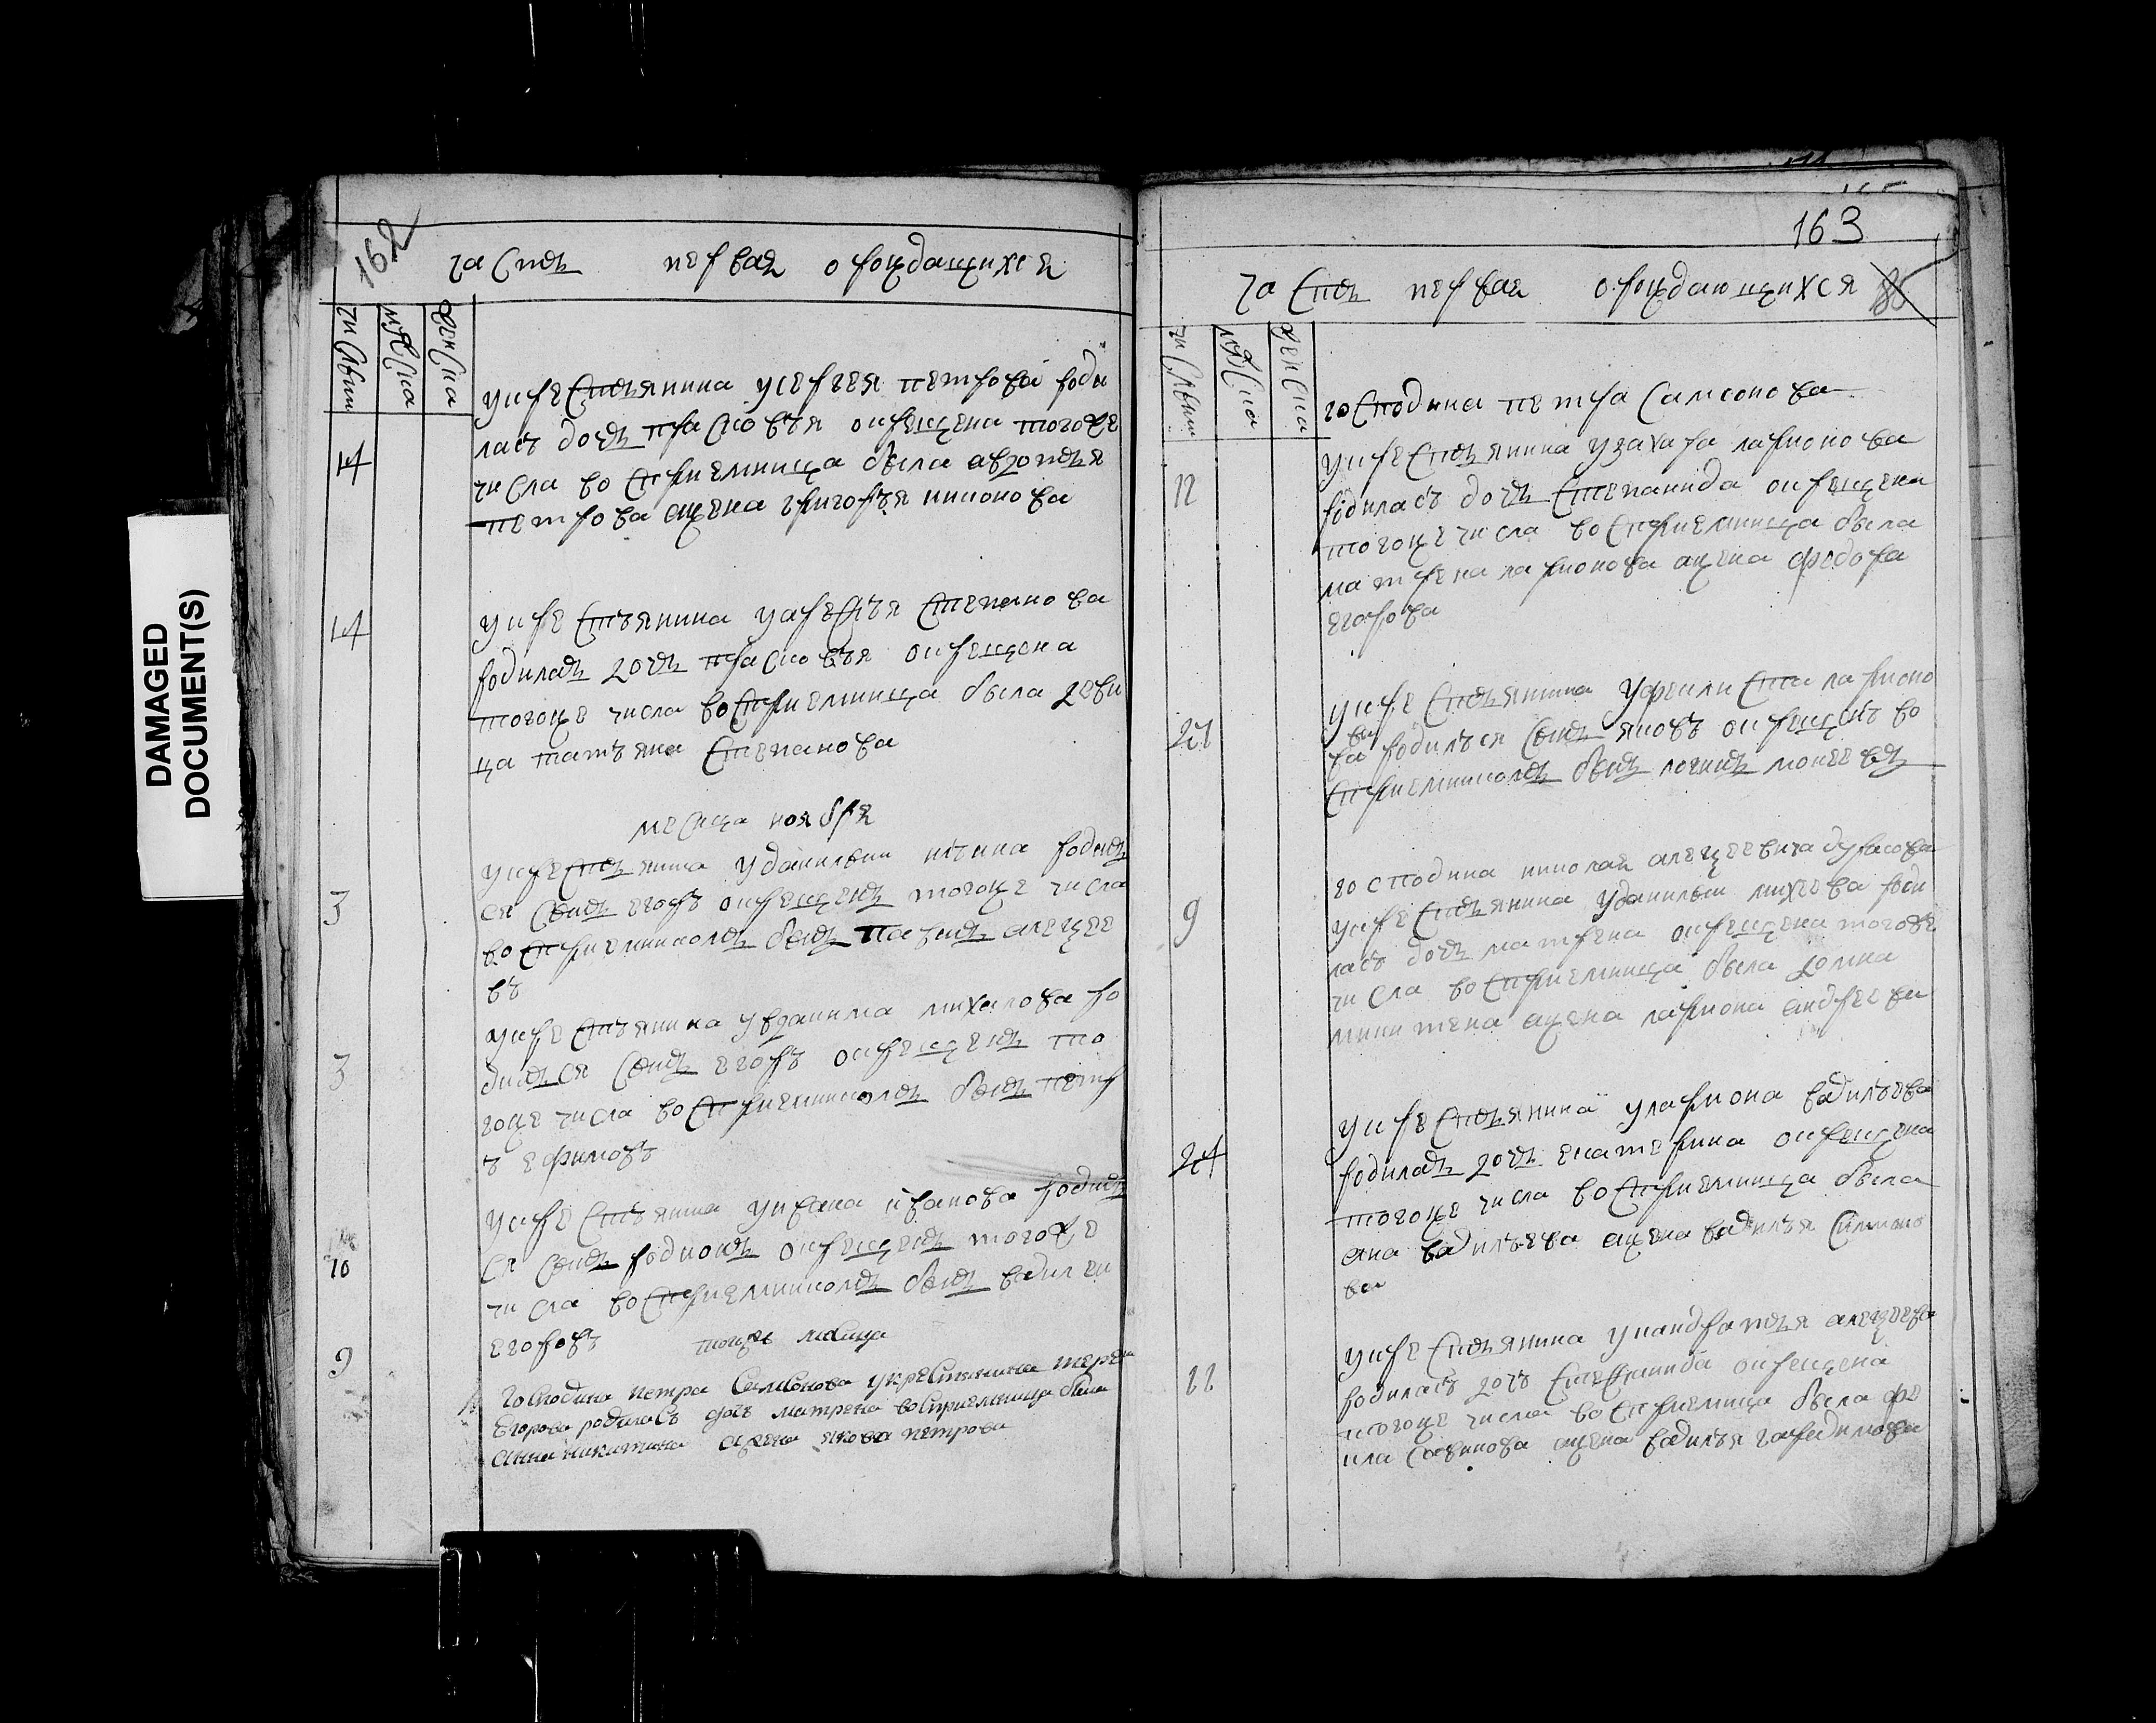 DAMAGED
DOCUMENT(S)
162
часть первая о рождащихся
числы
мужска
женска
14
укрестьянина усергея петрова роди
лась дочь прасковья икрещена тогоже
числа восприемница была авдотья
петрова ажена григорья никонова
14
укрестьянина
степанова
родилась дочь прасковья
икрещена
тогоже числа восприемница была деви
ца татьяна степанова
месеца ноября
3
укрестьянина уданилы
родил
ся сынъ егоръ икрещенъ тогоже числа
восприемникомъ былъ
алежее
въ
3
укрестьянина
михалова ро
дился сынъ егоръ икрещенъ то
гоже числа восприемникомъ былъ петр
ъ ефимовъ
10
укрестьянина уивана иванова родил
ся сынъ родионъ икрещенъ тогоже
числа восприемникомъ былъ василеи
егоровъ
тогоже месеца
9
господина петра самсонова укрестьянина
егорова родилась дочь матрена восприемница была
анна никитина ажена якова петрова
163
часть первая о рождающихся
числы
мужска
женска
господина петра самсонова
12
укрестьянина узахара ларионова
родилась дочь степанида икрещена
тогоже числа восприемница была
матрена ларионова ажена федора
егорова
21
укрестьянина уфеилиста ларионо
ва родилься сынъ яковъ икрещенъ во
сприемникомъ былъ логинъ мокеевъ
господина николая алежеевича дурасова
9
укрестьянина уданилы михеева роди
лась дочь матрена икрещена тогоже
числа восприемница была домна
микитена ажена лариона андреева
24
укрестьянина улариона васильева
родилась дочь екатерина икрещена
тогоже числа восприемница была
анна васильева ажена василья симионо
ва
22
укрестьянина укандратья алежеева
родилась дочь степанида икрещена
тогоже числа восприемница была фе
кла савинова ажена василья